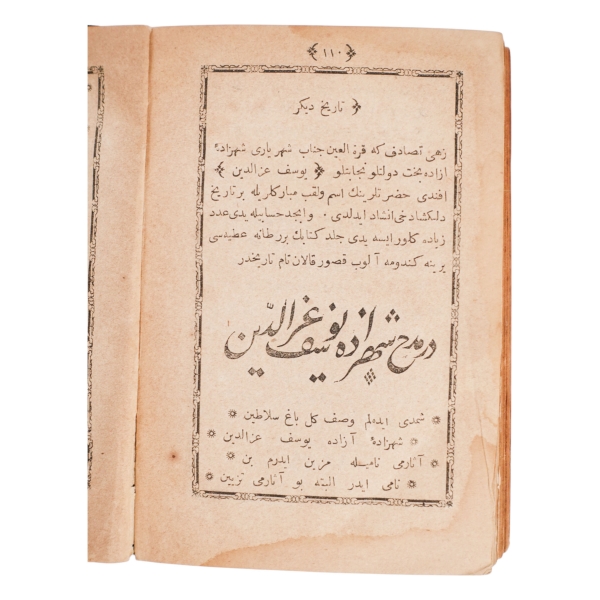 ﴿ ١١٠ ﴾
﴿ تاریخ دیکر ﴾
زهی تصادف که قرة العین جناب شهریاری شهزادهٔ
ازاده بخت دولتلو نجابتلو ﴿ یوسف عزالدین ﴾
افندی حضرتلرینك اسم ولقب مبارکلریله بر تاریخ
دلکشا دخی انشاد ایدلدی . وابجد حسابیله یدی عدد
زیاده کلور ایسه یدی جلد کتابك بر رطانه عطیه سی
یرینه کندومه آلوب قصور قالان تام تاریخدر
در مدح شهزاده یوسف عزالدین
شمدی ایده لم وصف کل باغ سلاطین
شهزادهٔ آزاده یوسف عزالدین
آثارمی نامیله مزین ایدرم بن
نامی ایدر البته بو آثارمی تزیین